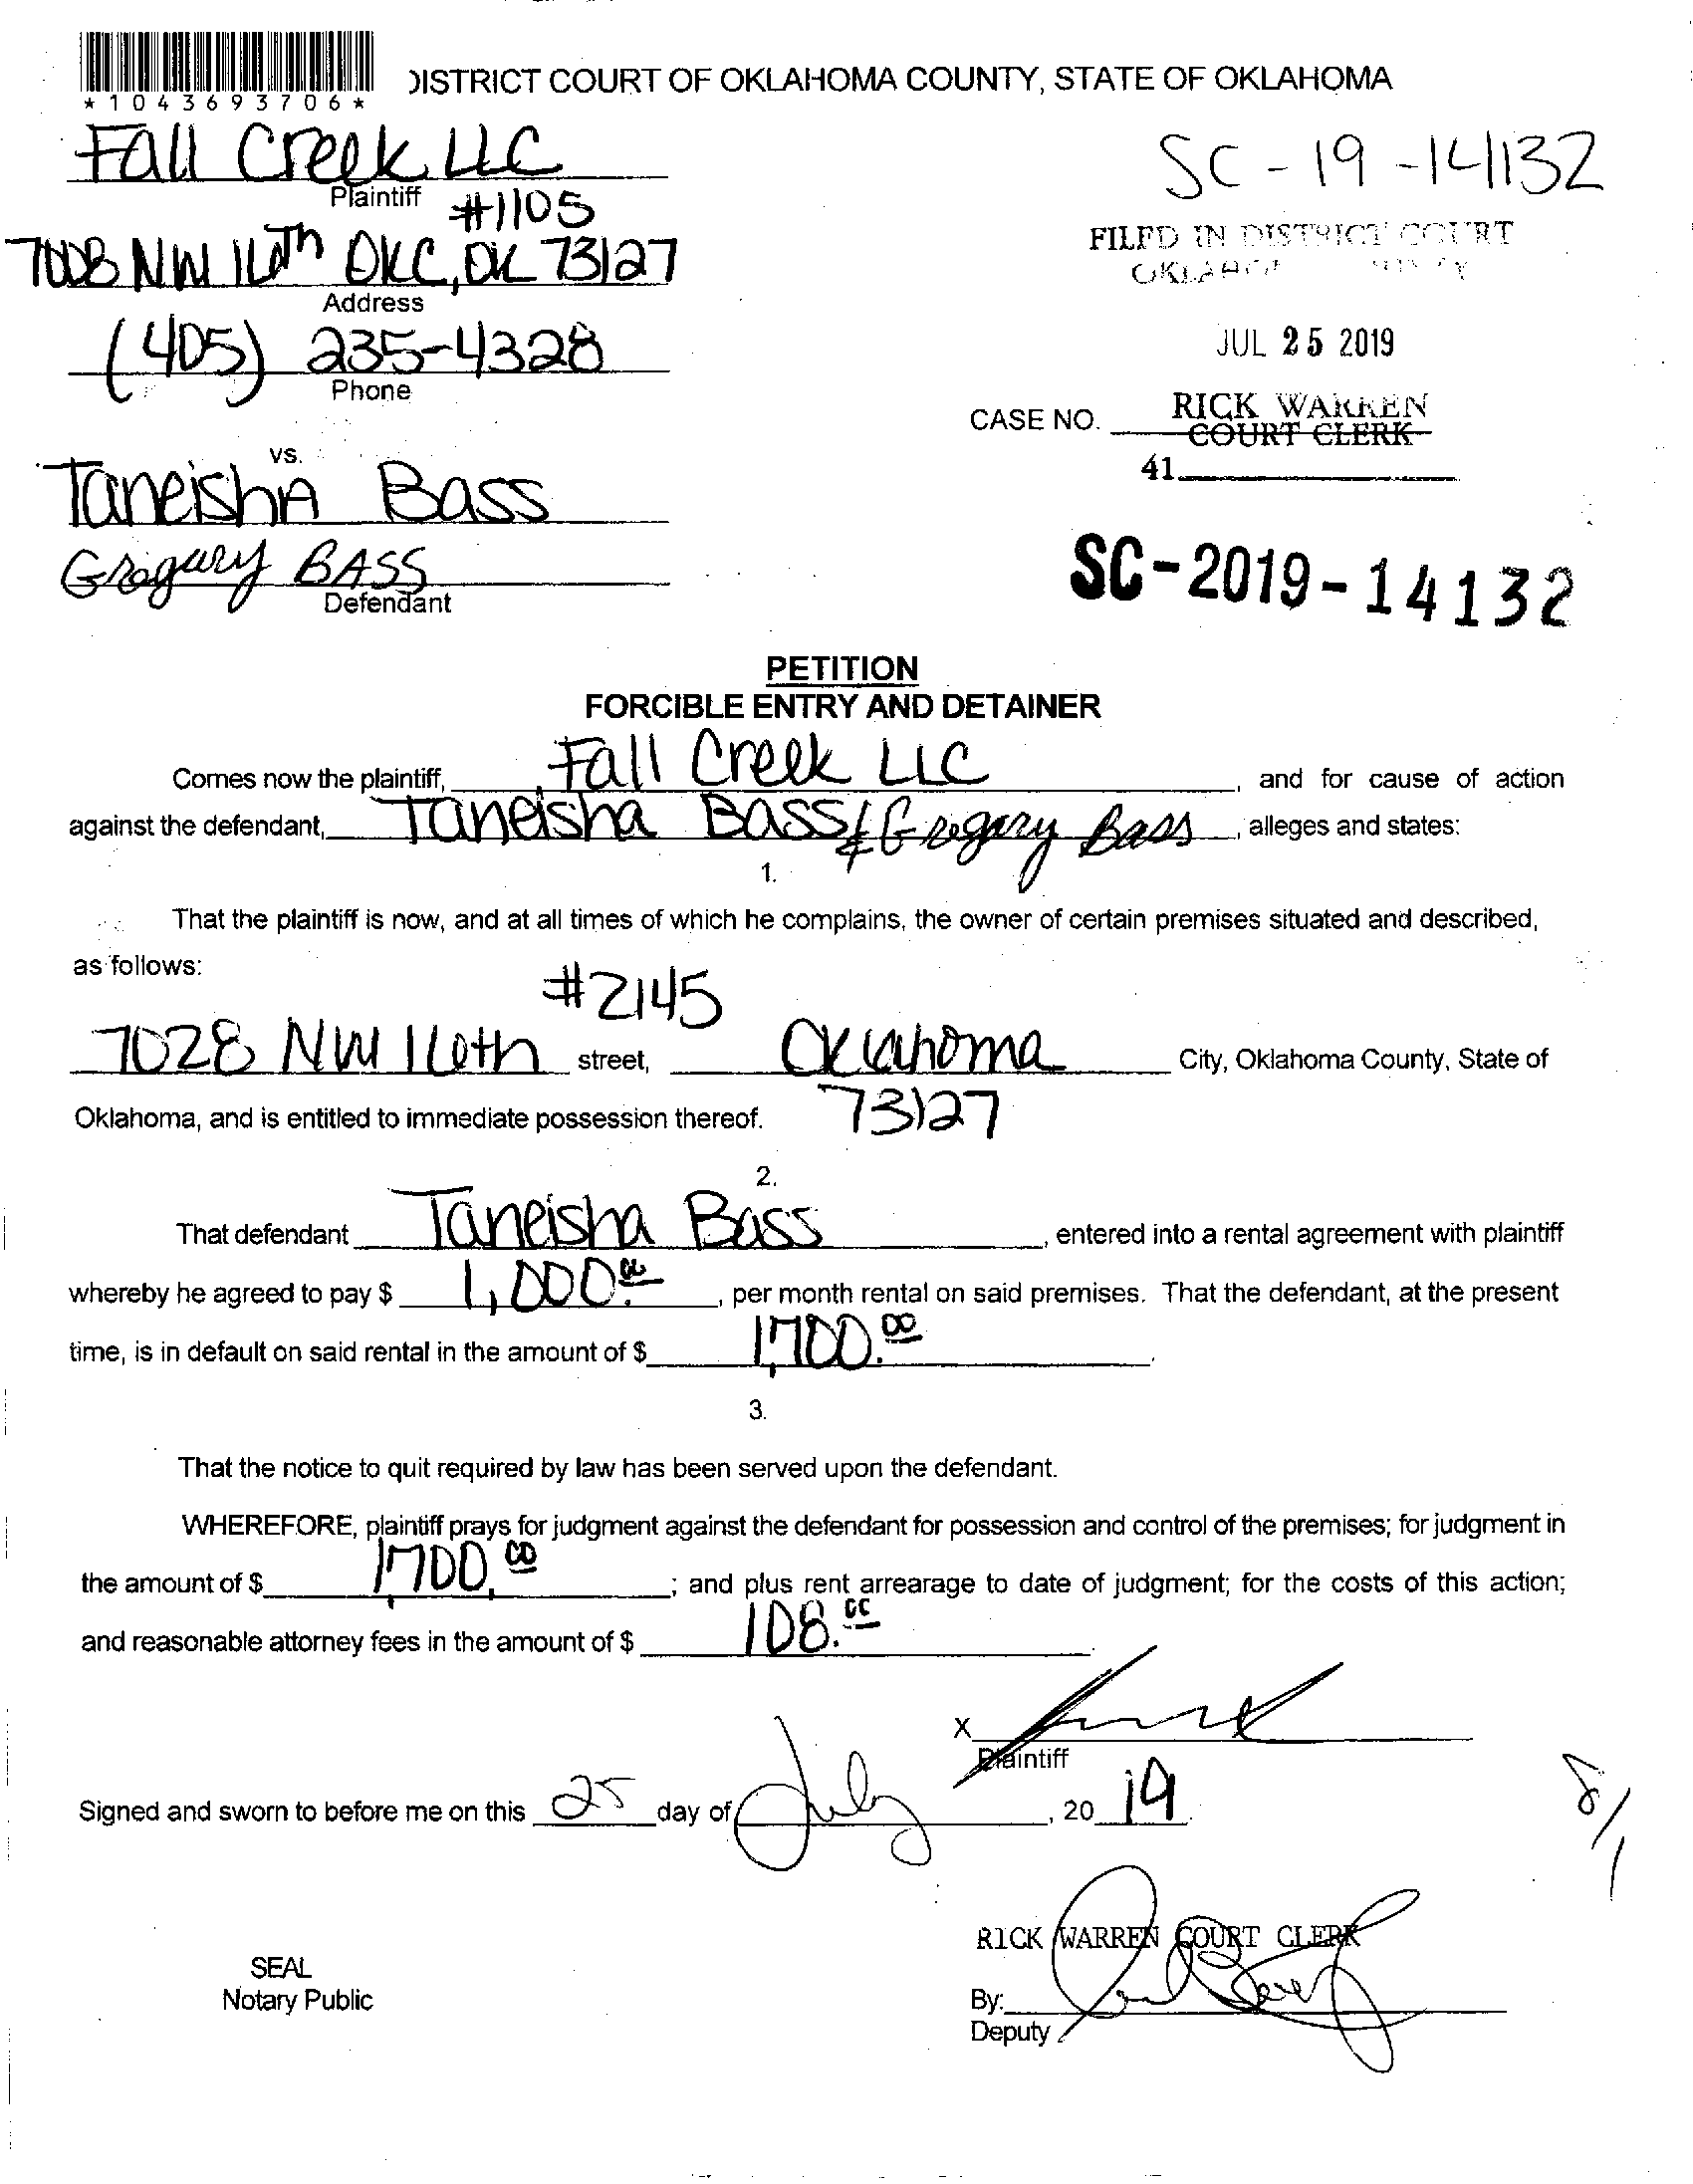 *1043693706*
DISTRICT COURT OF OKLAHOMA COUNTY, STATE OF OKLAHOMA
Fall Creek LLC
SC-19-14132
Plaintiff
#1105
7008 NW 16th OKC, OK 73127
FILED IN DISTRICT COURT
Address
(405) 235-4328
JUL 25 2019
Phone
RICK WARREN
CASE NO.
COURT CLERK
vs.
41
Taneisha Bass
Gregary BASS
SC-2019-14132
Defendant
PETITION
FORCIBLE ENTRY AND DETAINER
Comes now the plaintiff, Fall Creek LLC, and for cause of action
against the defendant, Taneisha Bass & Gregary Bass, alleges and states:
1.
That the plaintiff is now, and at all times of which he complains, the owner of certain premises situated and described,
as follows:
#2145
7028 NW 16th street, Oklahoma City, Oklahoma County, State of
Oklahoma, and is entitled to immediate possession thereof. 73127
2.
That defendant Taneisha Bass, entered into a rental agreement with plaintiff
whereby he agreed to pay $ 1,000.00, per month rental on said premises. That the defendant, at the present
time, is in default on said rental in the amount of $ 1,700.00.
3.
That the notice to quit required by law has been served upon the defendant.
WHEREFORE, plaintiff prays for judgment against the defendant for possession and control of the premises; for judgment in
the amount of $ 1,700.00; and plus rent arrearage to date of judgment; for the costs of this action;
and reasonable attorney fees in the amount of $ 108.00.
X
Plaintiff
Signed and sworn to before me on this 25 day of July, 20 19.
RICK WARREN COURT CLERK
SEAL
Notary Public
By:
Deputy